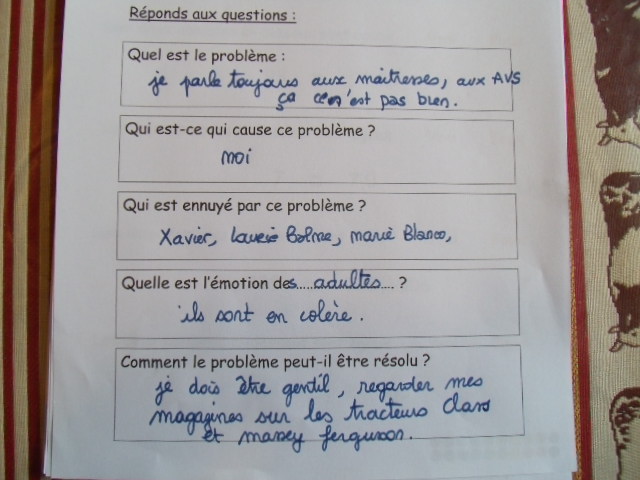 Réponds aux questions :
Quel est le problème :
je parle toujours aux maitresses, aux AVS
ça n'est pas bien.
Qui est-ce qui cause ce problème ?
moi
Qui est ennuyé par ce problème ?
Xavier, Balme, marie Blanco,
Quelle est l'émotion des.....adultes.... ?
ils sont en colère.
Comment le problème peut-il être résolu ?
je dois être gentil, regarder mes
magazines sur les tracteurs Claas
et massey ferguson.